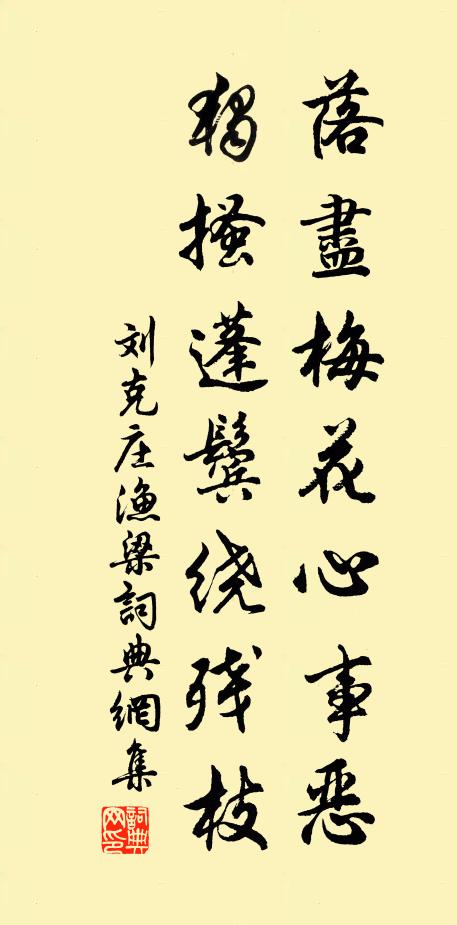 落盡梅花心事惡
獨搔蓬鬓绕残枝
刘克庄渔梁詞典網集
詞典网印